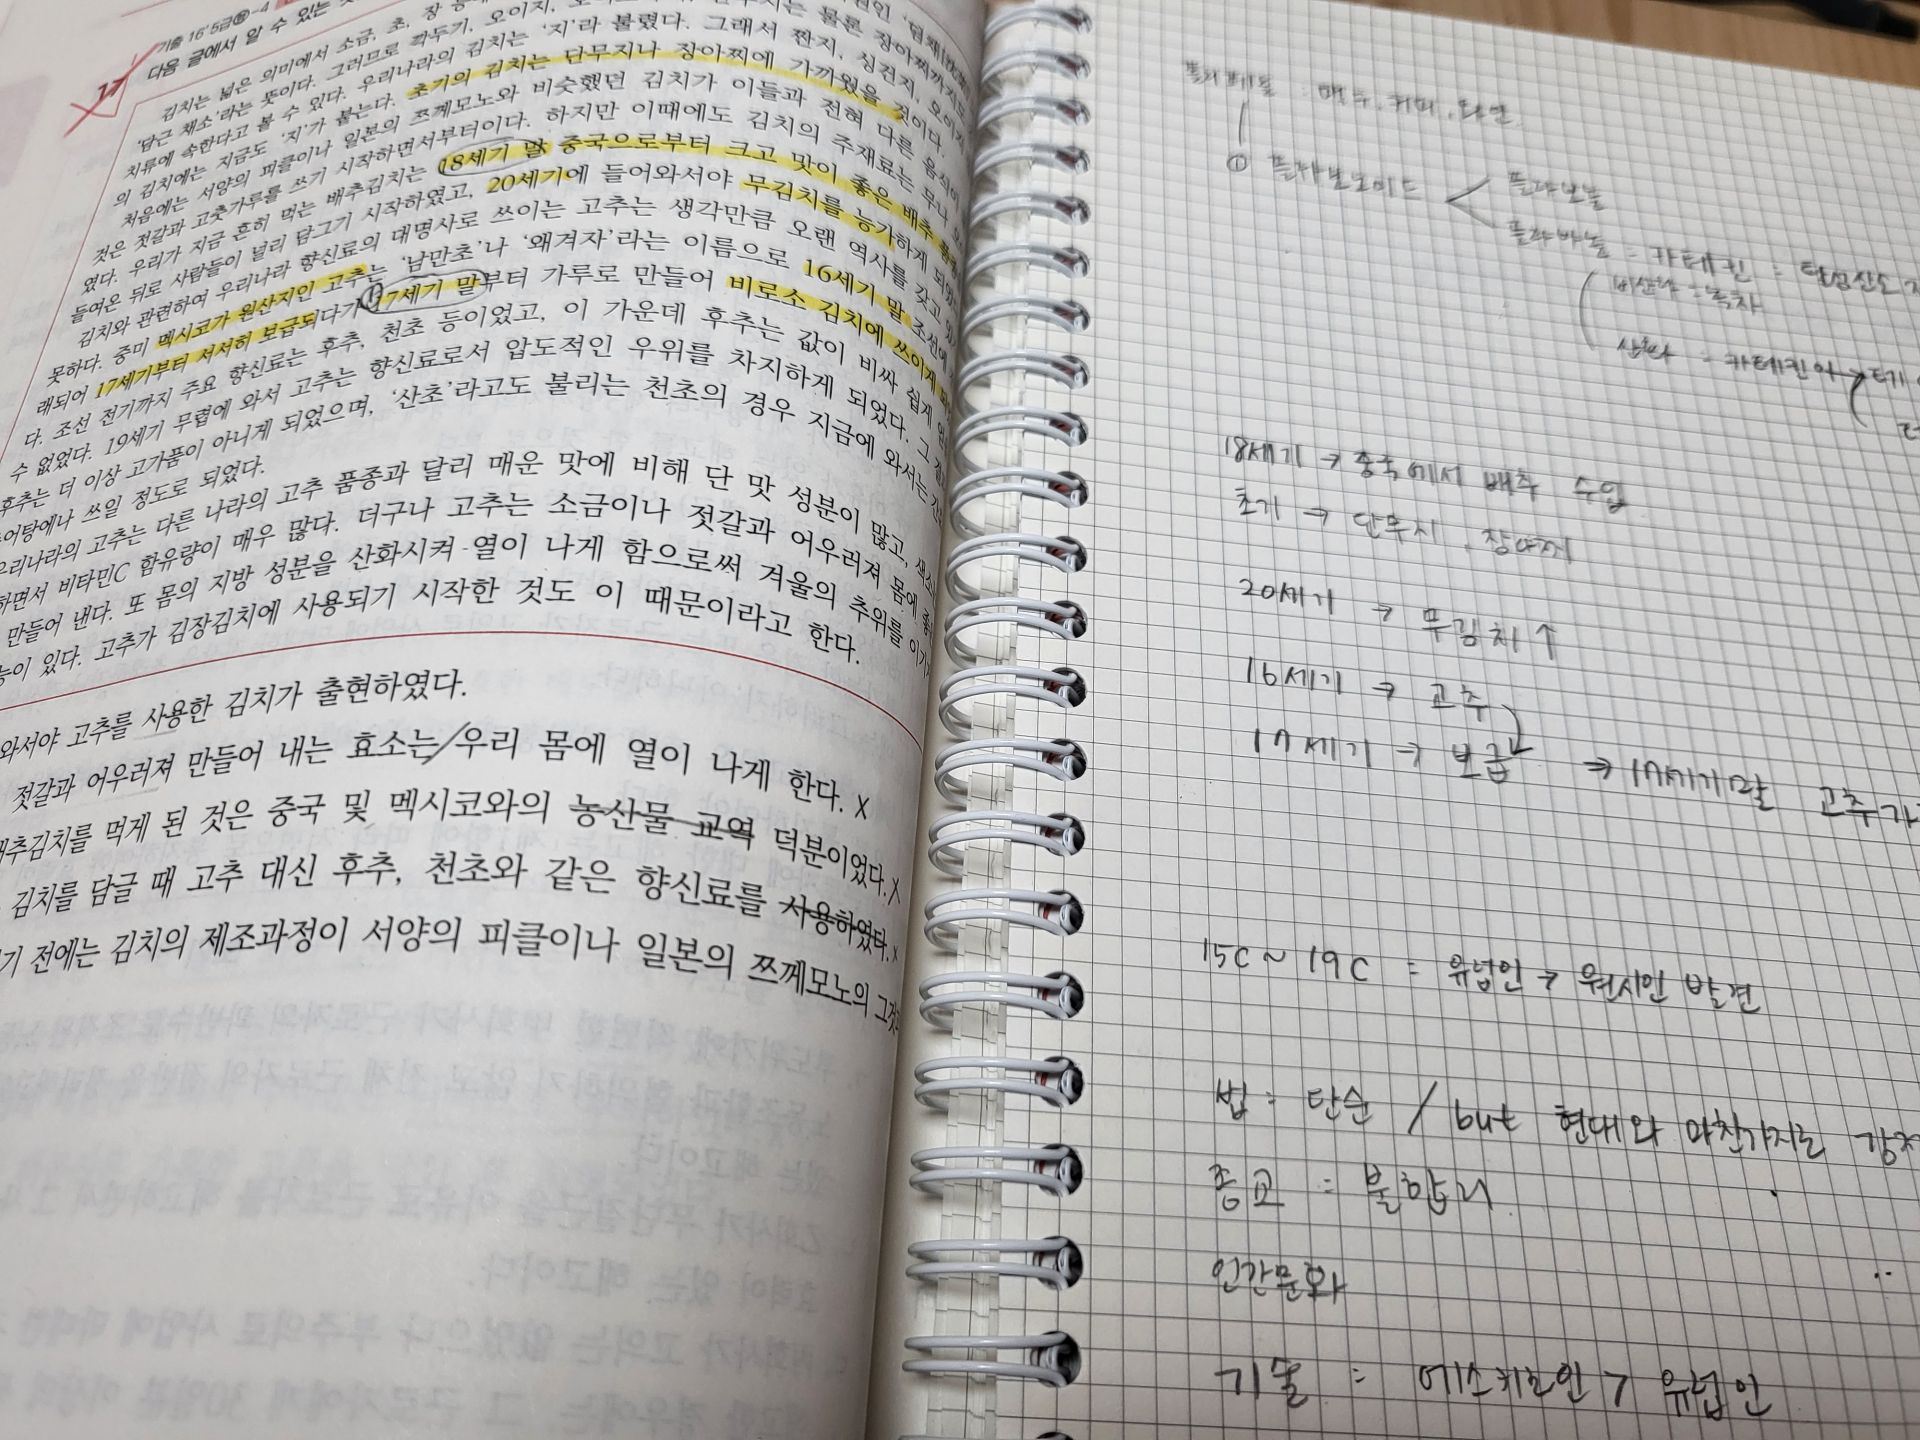 17
기출 16' 5급
다음 글에서 알 수 있는
김치는 넓은 의미에서 소금, 초, 장 등에
'담근 채소'라는 뜻이다. 그러므로 깍두기, 오이지,
치류에 속한다고 볼 수 있다. 우리나라의 김치는 '지'라 불렸다. 그래서 짠지, 싱건지, 오이지
의 김치에는 지금도 '지'가 붙는다. 초기의 김치는 단무지나 장아찌에 가까웠을 것이다.
처음에는 서양의 피클이나 일본의 쯔께모노와 비슷했던 김치가 이들과 전혀 다른 음식이
것은 젓갈과 고춧가루를 쓰기 시작하면서부터이다. 하지만 이때에도 김치의 주재료는 무나
였다. 우리가 지금 흔히 먹는 배추김치는 18세기 말 중국으로부터 크고 맛이 좋은 배추 품종
들여온 뒤로 사람들이 널리 담그기 시작하였고, 20세기에 들어와서야 무김치를 능가하게 되었
김치와 관련하여 우리나라 향신료의 대명사로 쓰이는 고추는 생각만큼 오랜 역사를 갖고 있
못하다. 중미 멕시코가 원산지인 고추는 '남만초'나 '왜겨자'라는 이름으로 16세기 말 조선에
래되어 17세기부터 서서히 보급되다가 17세기 말부터 가루로 만들어 비로소 김치에 쓰이게
다. 조선 전기까지 주요 향신료는 후추, 천초 등이었고, 이 가운데 후추는 값이 비싸 쉽게
수 없었다. 19세기 무렵에 와서 고추는 향신료로서 압도적인 우위를 차지하게 되었다. 그
후추는 더 이상 고가품이 아니게 되었으며, '산초'라고도 불리는 천초의 경우 지금에 와서는
어탕에나 쓰일 정도로 되었다.
우리나라의 고추는 다른 나라의 고추 품종과 달리 매운 맛에 비해 단 맛 성분이 많고, 색소
하면서 비타민C 함유량이 매우 많다. 더구나 고추는 소금이나 젓갈과 어우러져 몸에
만들어 낸다. 또 몸의 지방 성분을 산화시켜 열이 나게 함으로써 겨울의 추위를
능이 있다. 고추가 김장김치에 사용되기 시작한 것도 이 때문이라고 한다.
와서야 고추를 사용한 김치가 출현하였다.
젓갈과 어우러져 만들어 내는 효소는/우리 몸에 열이 나게 한다. X
배추김치를 먹게 된 것은 중국 및 멕시코와의 농산물 교역 덕분이었다. X
김치를 담글 때 고추 대신 후추, 천초와 같은 향신료를 사용하였다. X
기 전에는 김치의 제조과정이 서양의 피클이나 일본의 쯔께모노의 그것
폴리페놀 : 맥주, 커피, 와인
① 플라보노이드 < 플라보놀
플라바놀 = 카테킨 = 탄섬산소
비산화 = 녹차
산화 = 카테킨아 → 테
18세기 → 중국에서 배추 수입
초기 → 단무지, 장아찌
20세기 → 무김치↑
16세기 → 고추
17세기 → 보급 → 17세기말 고추가
15C ~ 19C = 유럽인 → 원시인 발견
법 : 단순 / but 현대와 마찬가지로
종교 : 불합리
인간문화
기술 : 에스키모인 > 유럽인